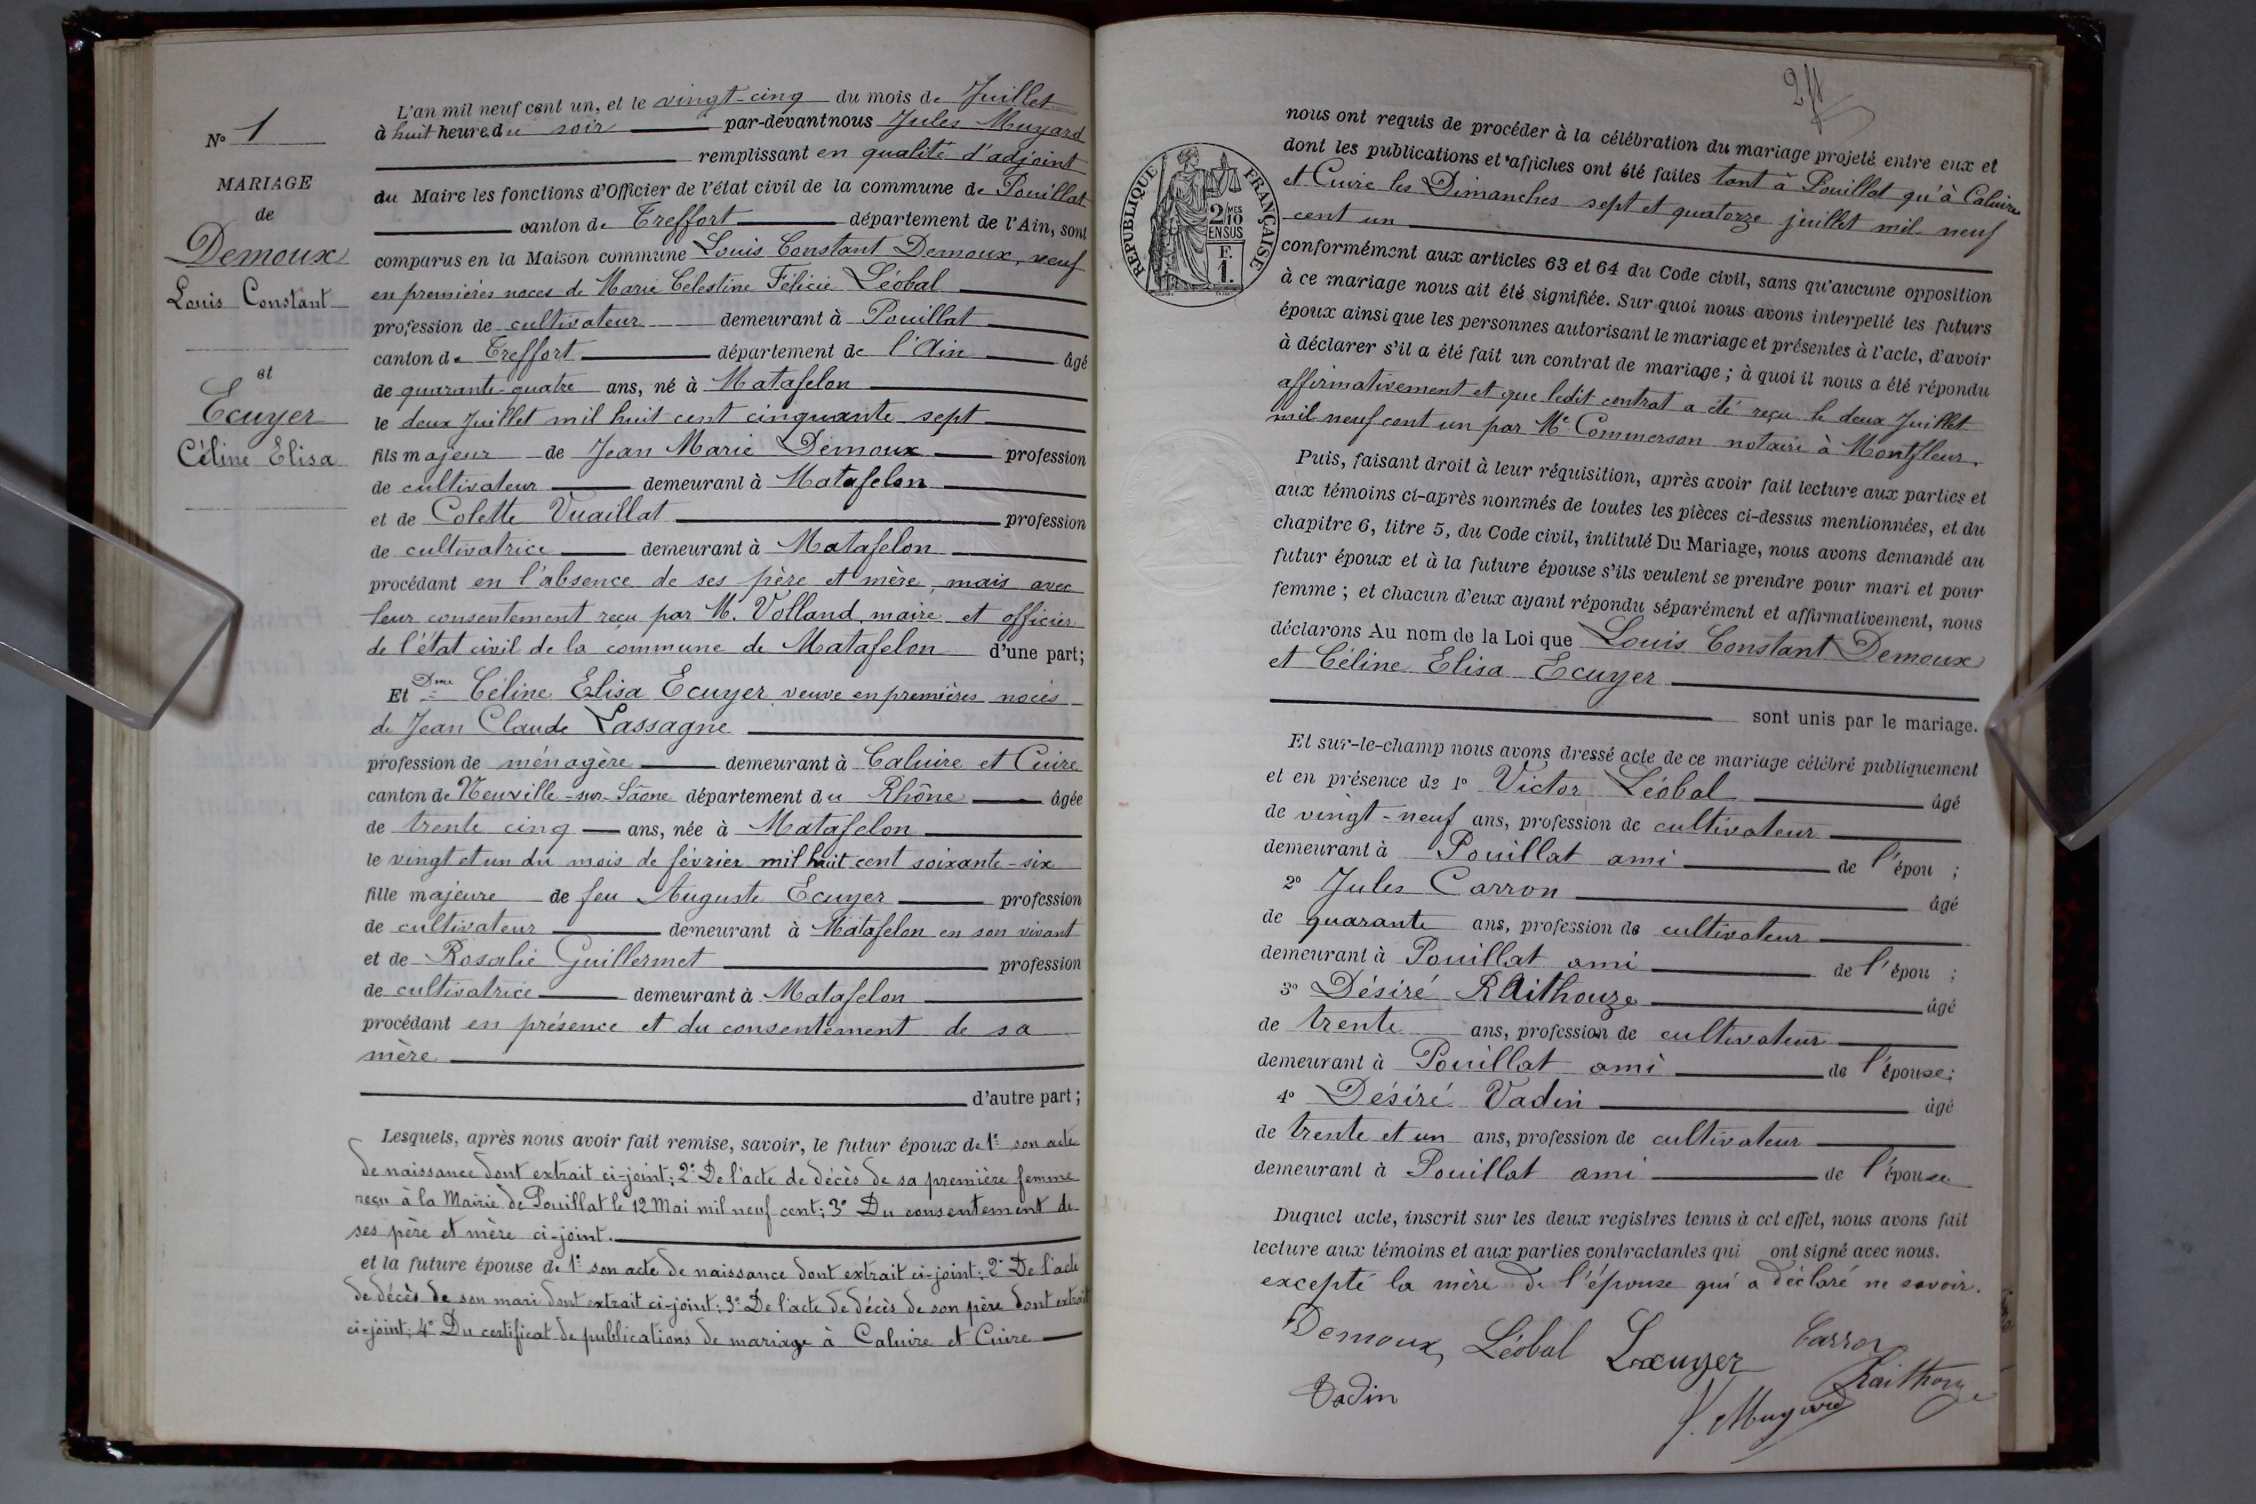 N° 1
MARIAGE
de
Demoux
Louis Constant
et
Ecuyer
Céline Elisa
L'an mil neuf cent un, et le vingt-cinq du mois de Juillet
à huit heure du soir par-devant nous Jules Muyard
remplissant en qualité d'adjoint
du Maire les fonctions d'Officier de l'état civil de la commune de Pouillat
canton de Treffort département de l'Ain, sont
comparus en la Maison commune Louis Constant Demoux, veuf
en premières noces de Marie Celestine Félicie Léobal
profession de cultivateur demeurant à Pouillat
canton de Treffort département de l'Ain âgé
de quarante-quatre ans, né à Matafelon
le deux Juillet mil huit cent cinquante sept
fils majeur de Jean Marie Demoux profession
de cultivateur demeurant à Matafelon
et de Colette Vuaillat profession
de cultivatrice demeurant à Matafelon
procédant en l'absence de ses père et mère, mais avec
leur consentement reçu par M. Volland, maire et officier
de l'état civil de la commune de Matafelon d'une part;
Et Dme Céline Elisa Ecuyer veuve en premières noces
de Jean Claude Lassagne
profession de ménagère demeurant à Caluire et Cuire
canton de Neuville-sur-Saône département du Rhône âgée
de trente cinq ans, née à Matafelon
le vingt et un du mois de février mil huit cent soixante-six
fille majeure de feu Auguste Ecuyer profession
de cultivateur demeurant à Matafelon en son vivant
et de Rosalie Guillermet profession
de cultivatrice demeurant à Matafelon
procédant en présence et du consentement de sa
mère
d'autre part;
Lesquels, après nous avoir fait remise, savoir, le futur époux de 1° son acte
de naissance dont extrait ci-joint; 2° De l'acte de décès de sa première femme
reçu à la Mairie de Pouillat le 12 Mai mil neuf cent; 3° Du consentement de
ses père et mère ci-joint.
et la future épouse de 1° son acte de naissance dont extrait ci-joint; 2° De l'acte
de décès de son mari dont extrait ci-joint; 3° De l'acte de décès de son père dont extrait
ci-joint; 4° Du certificat de publications de mariage à Caluire et Cuire
RÉPUBLIQUE FRANÇAISE
2/10 MES
EN SUS
F.
1.
nous ont requis de procéder à la célébration du mariage projeté entre eux et
dont les publications et affiches ont été faites tant à Pouillat qu'à Caluire
et Cuire les Dimanches sept et quatorze juillet mil neuf
cent un
conformément aux articles 63 et 64 du Code civil, sans qu'aucune opposition
à ce mariage nous ait été signifiée. Sur quoi nous avons interpellé les futurs
époux ainsi que les personnes autorisant le mariage et présentes à l'acte, d'avoir
à déclarer s'il a été fait un contrat de mariage; à quoi il nous a été répondu
affirmativement et que ledit contrat a été reçu le deux Juillet
mil neuf cent un par Me Commerson notaire à Montfleur.
Puis, faisant droit à leur réquisition, après avoir fait lecture aux parties et
aux témoins ci-après nommés de toutes les pièces ci-dessus mentionnées, et du
chapitre 6, titre 5, du Code civil, intitulé Du Mariage, nous avons demandé au
futur époux et à la future épouse s'ils veulent se prendre pour mari et pour
femme; et chacun d'eux ayant répondu séparément et affirmativement, nous
déclarons Au nom de la Loi que Louis Constant Demoux
et Céline Elisa Ecuyer
sont unis par le mariage.
Et sur-le-champ nous avons dressé acte de ce mariage célébré publiquement
et en présence de 1° Victor Léobal âgé
de vingt-neuf ans, profession de cultivateur
demeurant à Pouillat ami de l'épou ;
2° Jules Carron âgé
de quarante ans, profession de cultivateur
demeurant à Pouillat ami de l'épou ;
3° Désiré Raithouze âgé
de trente ans, profession de cultivateur
demeurant à Pouillat ami de l'épouse;
4° Désiré Vadin âgé
de trente et un ans, profession de cultivateur
demeurant à Pouillat ami de l'épouse
Duquel acte, inscrit sur les deux registres tenus à cet effet, nous avons fait
lecture aux témoins et aux parties contractantes qui ont signé avec nous.
excepté la mère de l'épouse qui a déclaré ne savoir.
Demoux Léobal Ecuyer Carron
Vadin Raithouze
J. Muyard